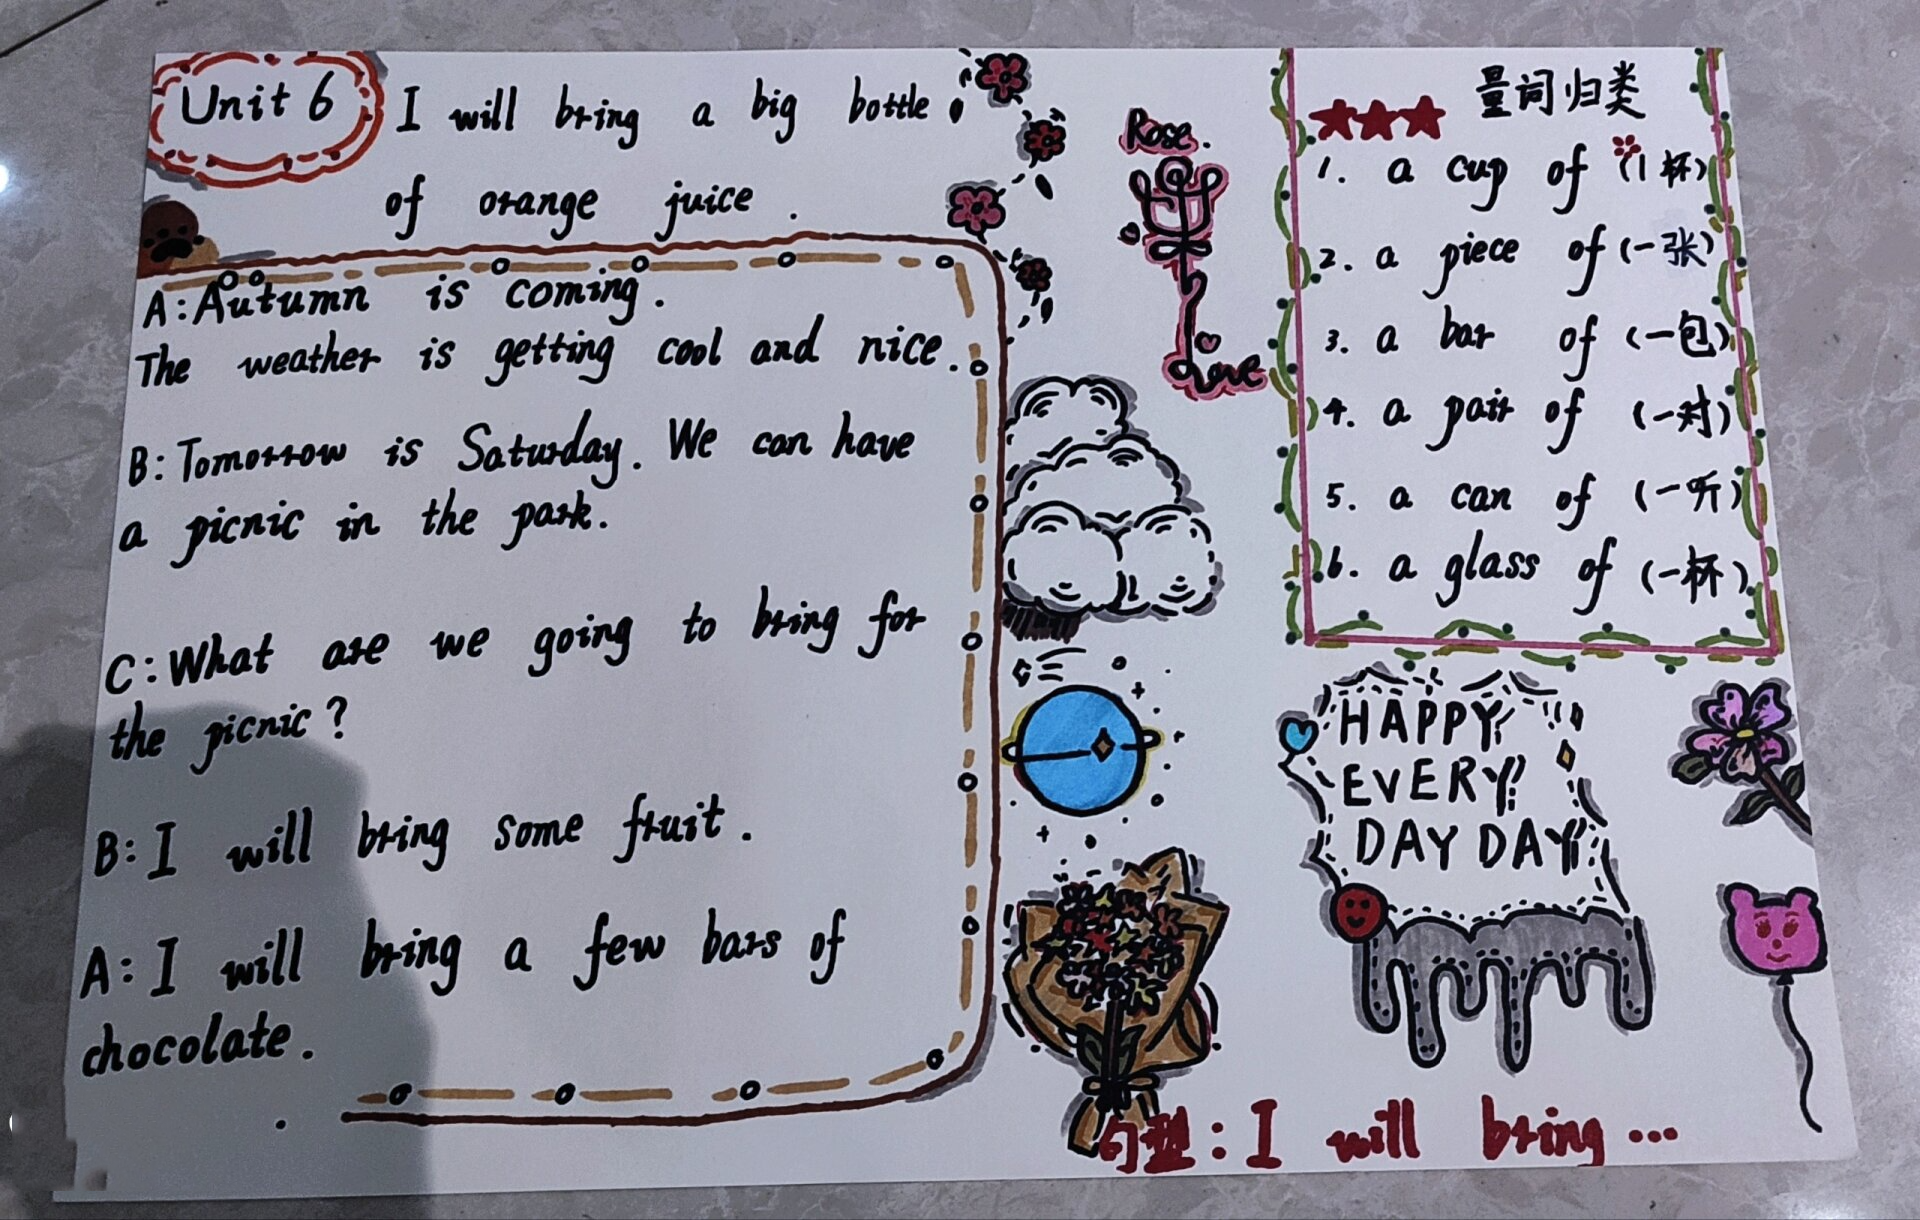 Unit 6
I will bring a big bottle
of orange juice.
A: Autumn is coming.
The weather is getting cool and nice.
B: Tomorrow is Saturday. We can have
a picnic in the park.
C: What are we going to bring for
the picnic?
B: I will bring some fruit.
A: I will bring a few bars of
chocolate.
Rose.
Love
量词归类
1. a cup of (1杯)
2. a piece of (一张)
3. a bar of (一包)
4. a pair of (一对)
5. a can of (一听)
6. a glass of (一杯)
HAPPY
EVERY
DAY DAY
句型: I will bring ...